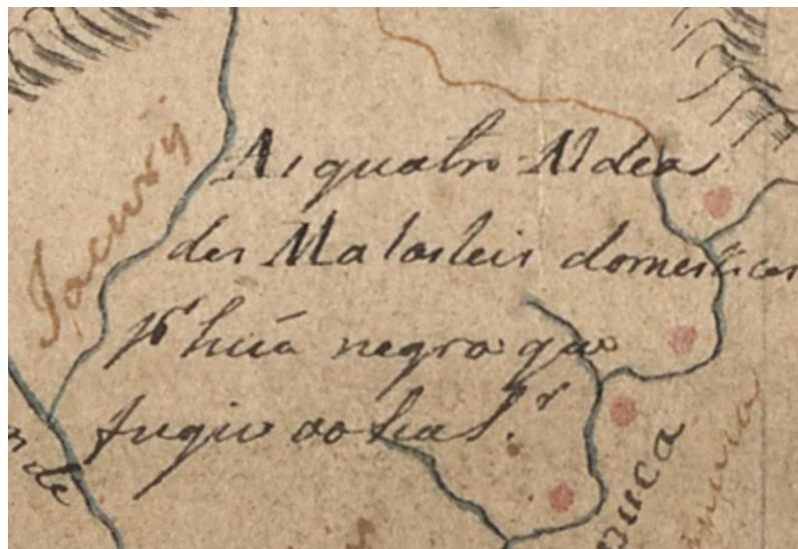 Jacury
As quatro Aldeas
dos Malaleis domesticas
pr huã negra que
fugio ao seu Sr.
de
nuca